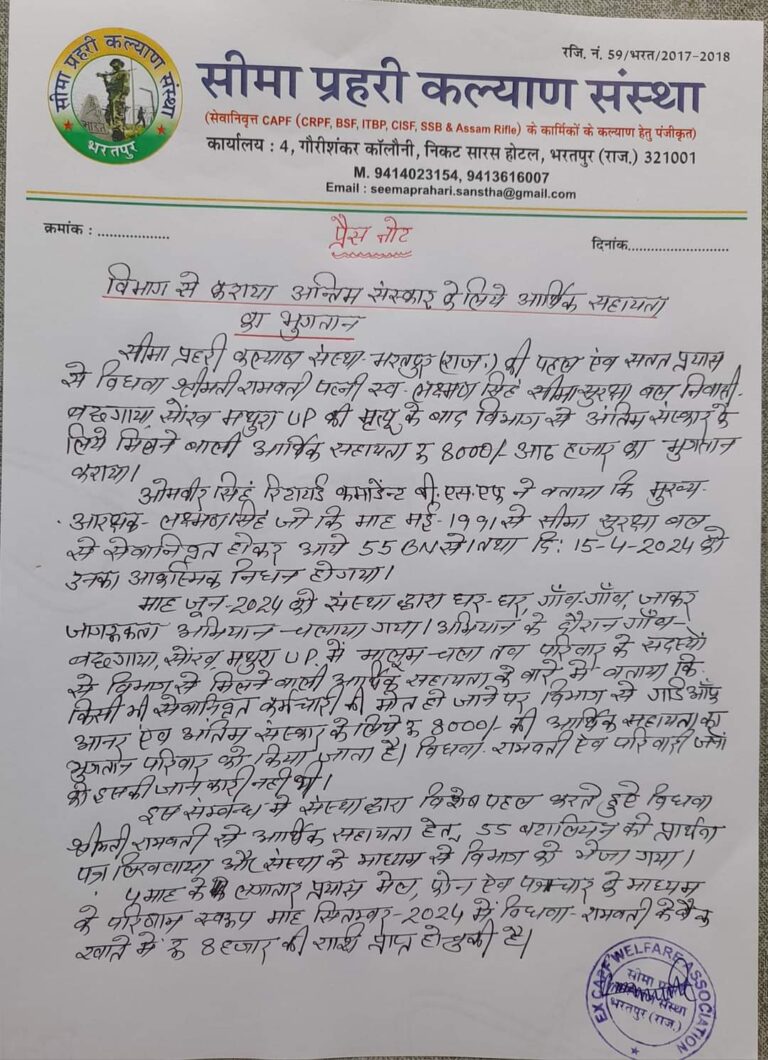 रजि. नं. 59/भरत/2017-2018
सीमा प्रहरी कल्याण संस्था
भारत
भरतपुर
सीमा प्रहरी कल्याण संस्था
(सेवानिवृत्त CAPF (CRPF, BSF, ITBP, CISF, SSB & Assam Rifle) के कार्मिकों के कल्याण हेतु पंजीकृत)
कार्यालय : 4, गौरीशंकर कॉलौनी, निकट सारस होटल, भरतपुर (राज.) 321001
M. 9414023154, 9413616007
Email : seemaprahari.sanstha@gmail.com
क्रमांक : .................
प्रैस नोट
दिनांक.........................
विभाग से कराया अन्तिम संस्कार के लिये आर्थिक सहायता
का भुगतान
सीमा प्रहरी कल्याण संस्था-भरतपुर (राज.) की पहल एंव सतत प्रयास
से विधवा श्रीमती रामवती पत्नी स्व- लक्ष्मण सिहं सीमा सुरक्षा बल निवासी-
सौंख मथुरा UP की मृत्यू के बाद विभाग से अंतिम संस्कार के
लिये मिलने बाली आर्थिक सहायता रु 8000/- आठ हजार का भुगतान
कराया।
ओमवीर सिहं रिटायर्ड कमांडेन्ट बी.एस.एफ ने बताया कि मुख्य-
आरक्षक- लक्ष्मण सिहं जो कि माह मई-1991 से सीमा सुरक्षा बल
से सेवानिवृत होकर आये 55 BN से। तथा दि: 15-4-2024 को
उनका आकस्मिक निधन होगया।
माह जून-2024 को संस्था द्वारा घर-घर, गाँव-गाँव, जाकर
जागरूकता अभियान चलाया गया। अभियान के दौरान गाँव-
सौंख मथुरा UP में मालूम चला तब परिवार के सदस्यों
से विभाग से मिलने वाली आर्थिक सहायता के बारे में बताया कि
किसी भी सेवानिवृत कर्मचारी की मौत हो जाने पर विभाग से गार्ड ऑफ
आनर एंव अंतिम संस्कार के लिये रु 8000/- की आर्थिक सहायता का
भुगतान परिवार को किया जाता है। विधवा रामवती एंव परिवारी जनों
को इसकी जानकारी नही थी।
इस सम्बन्ध में संस्था द्वारा विशेष पहल करते हुऐ विधवा
श्रीमती रामवती से आर्थिक सहायता हेतु, 55 बटालियन को प्रार्थना
पत्र लिखवाया और संस्था के माध्यम से विभाग को भेजा गया।
4 माह के लगातार प्रयास मेल, फोन एंव पत्राचार के माध्यम
के परिणाम स्वरूप माह सितम्बर-2024 में विधवा-रामवती के बैंक
खाते में रु 8 हजार की राशि प्राप्त हो चुकी है।
EX CAPF WELFARE ASSOCIATION
सीमा
संस्था
भरतपुर (राज.)